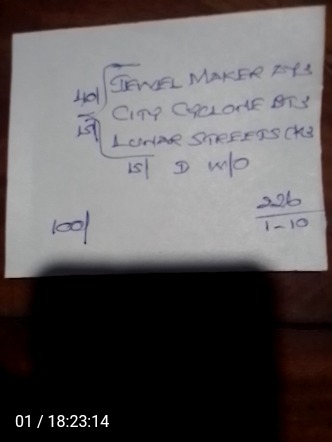 40/ JEWEL MAKER
15/ CITY CYCLONE
LUNAR STREETS
15/ D W/O
100/
226
1-10
01 / 18:23:14